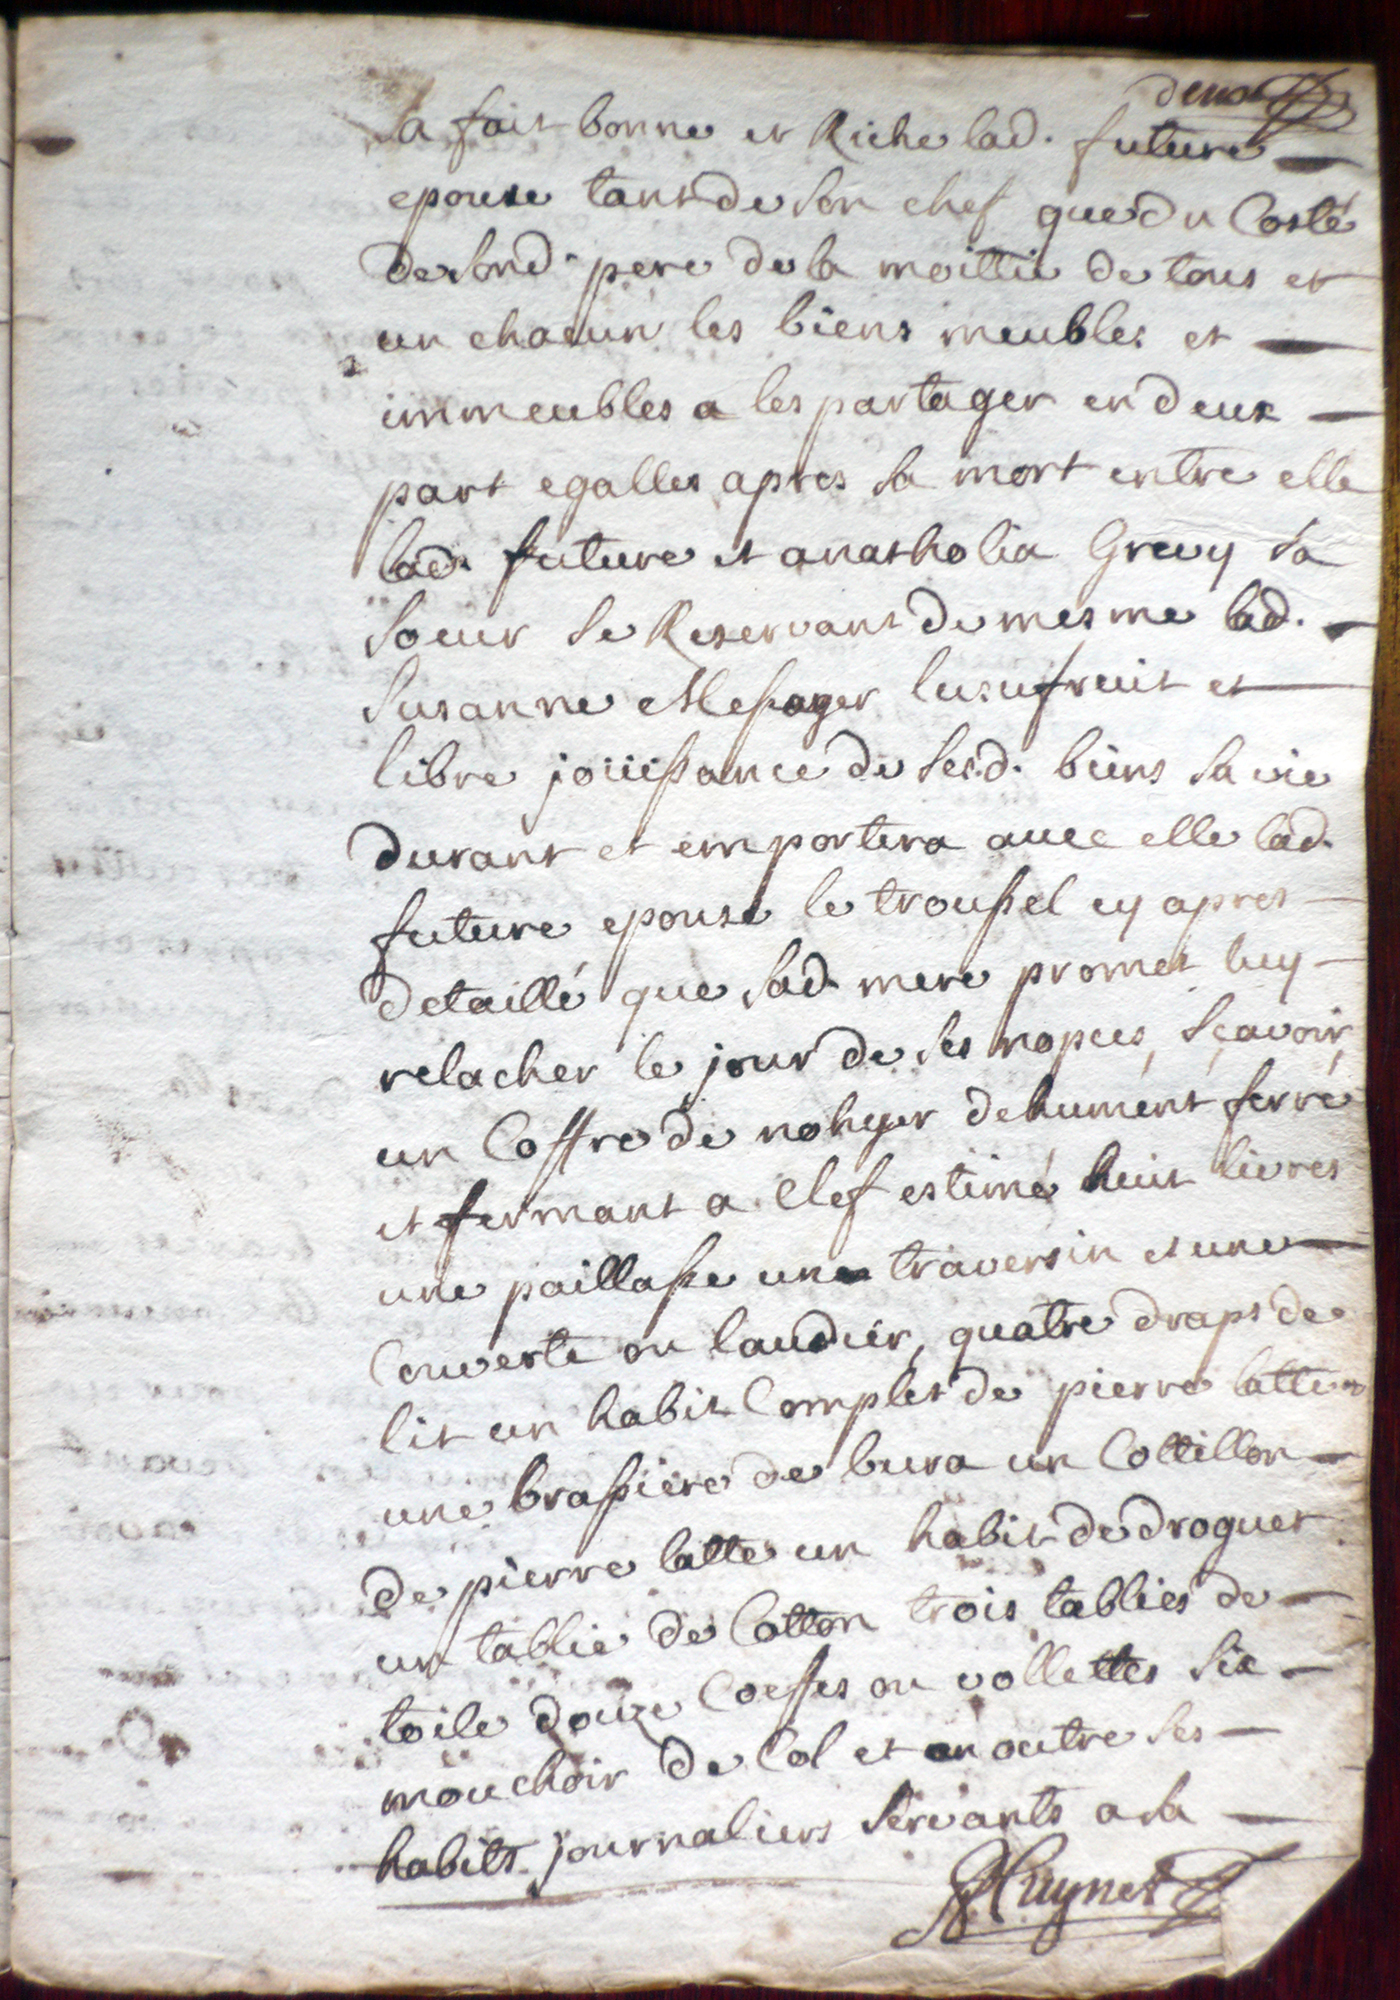 deux
la fait bonne et Riche lad. future
epouse tant de son chef que du Costé
de sond. pere de la moittie de tous et
un chacun les biens meubles et
immeubles a les partager en deux
part egalles apres sa mort entre elle
lad. future et anatholia Grevy sa
soeur se Reservant de mesme lad.
Susanne Messager lusufruit et
libre jouissance de sesd. biens sa vie
durant et emportera avec elle lad.
future epouse le troussel cy apres
detaillé que sad. mere promet luy
relacher le jour de ses nopces, sçavoir
un Coffre de nohyer dehument ferré
et fermant a Clef estimé huit livres
une paillasse une traversin et une
Couverte ou laudier, quatre draps de
lit un habit Complet de pierre latte
une brassiere de bura un Cottillon
de pierre latte un habit de droguet
un tablié de Cotton trois tabliés de
toile douze Coeffes ou vollettes six
mouchoir de Col et en outre ses
habits journaliers servants a sa